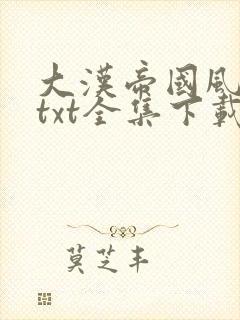 大漢帝國風
txt全集下載
莫芝丰